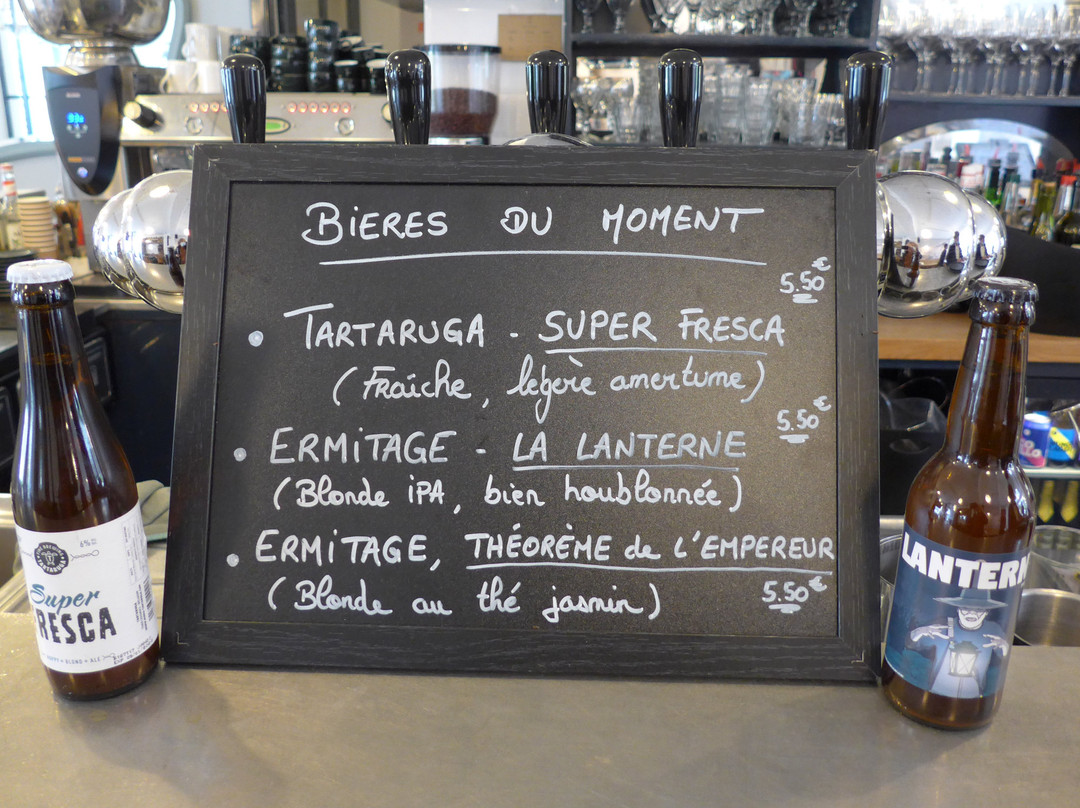 BIERES DU MOMENT
5.50€
• TARTARUGA - SUPER FRESCA
(Fraîche, légère amertume)
5.50€
• ERMITAGE - LA LANTERNE
(Blonde IPA, bien houblonnée)
• ERMITAGE, THÉORÈME de L'EMPEREUR
(Blonde au thé jasmin)
5.50€
6%
TARTARUGA
Super
RESCA
HOPPY • BLOND • ALE
LANTERN